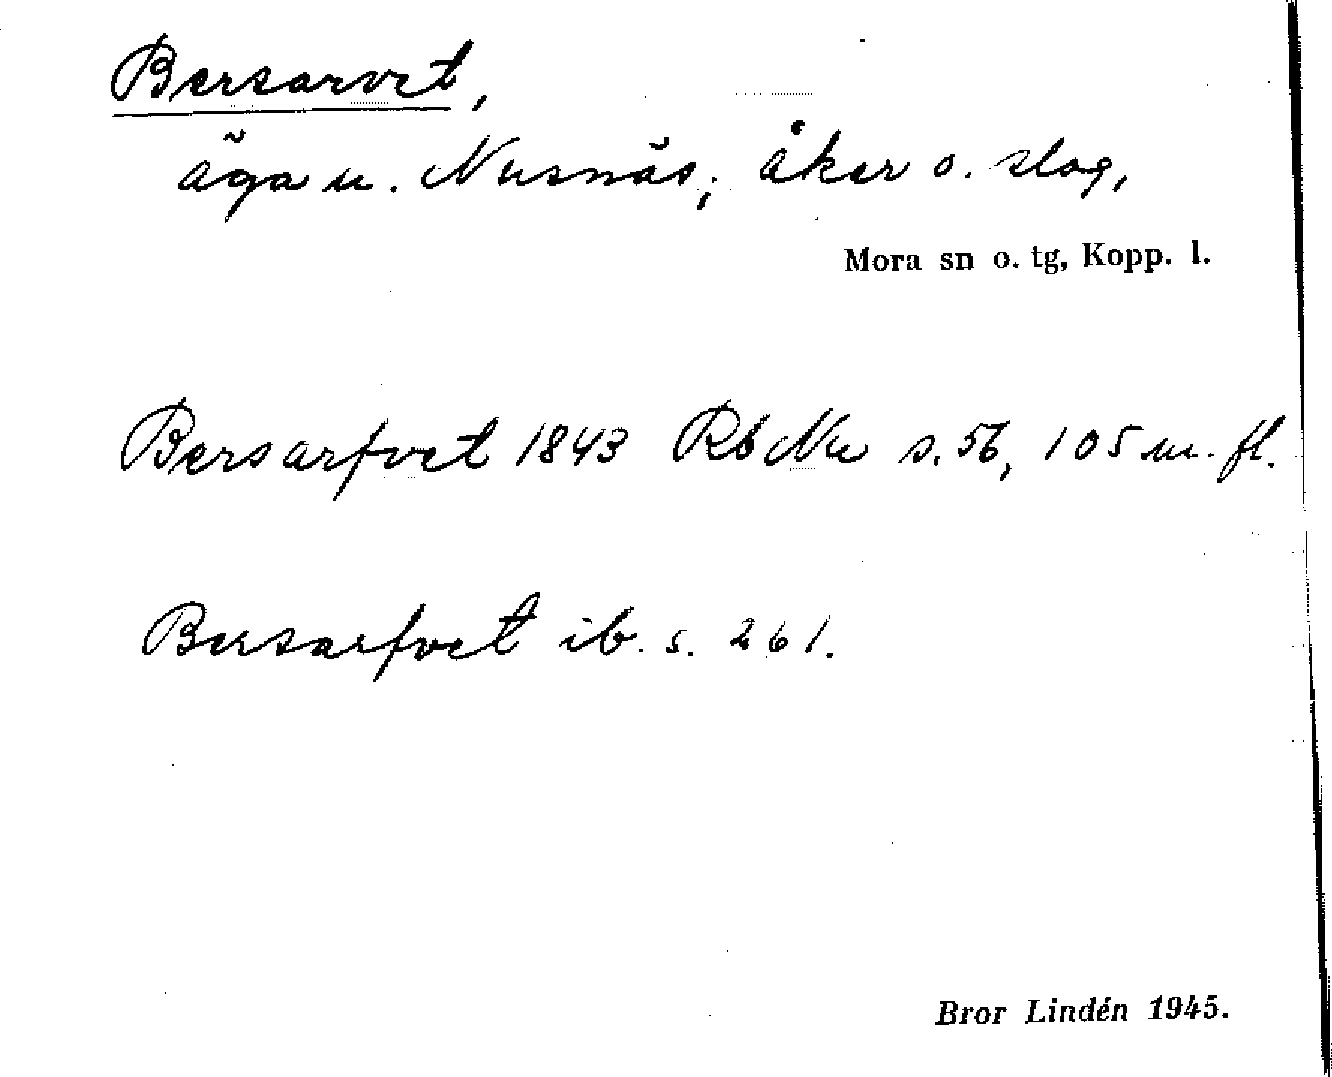 Bersarvet,
äga u. Nusnäs; åker o. slog,
Mora sn o. tg, Kopp. l.
Bersarfvet 1843 Rb Nu s. 56, 105 m. fl.
Bersarfvet ib. s. 261.
Bror Lindén 1945.